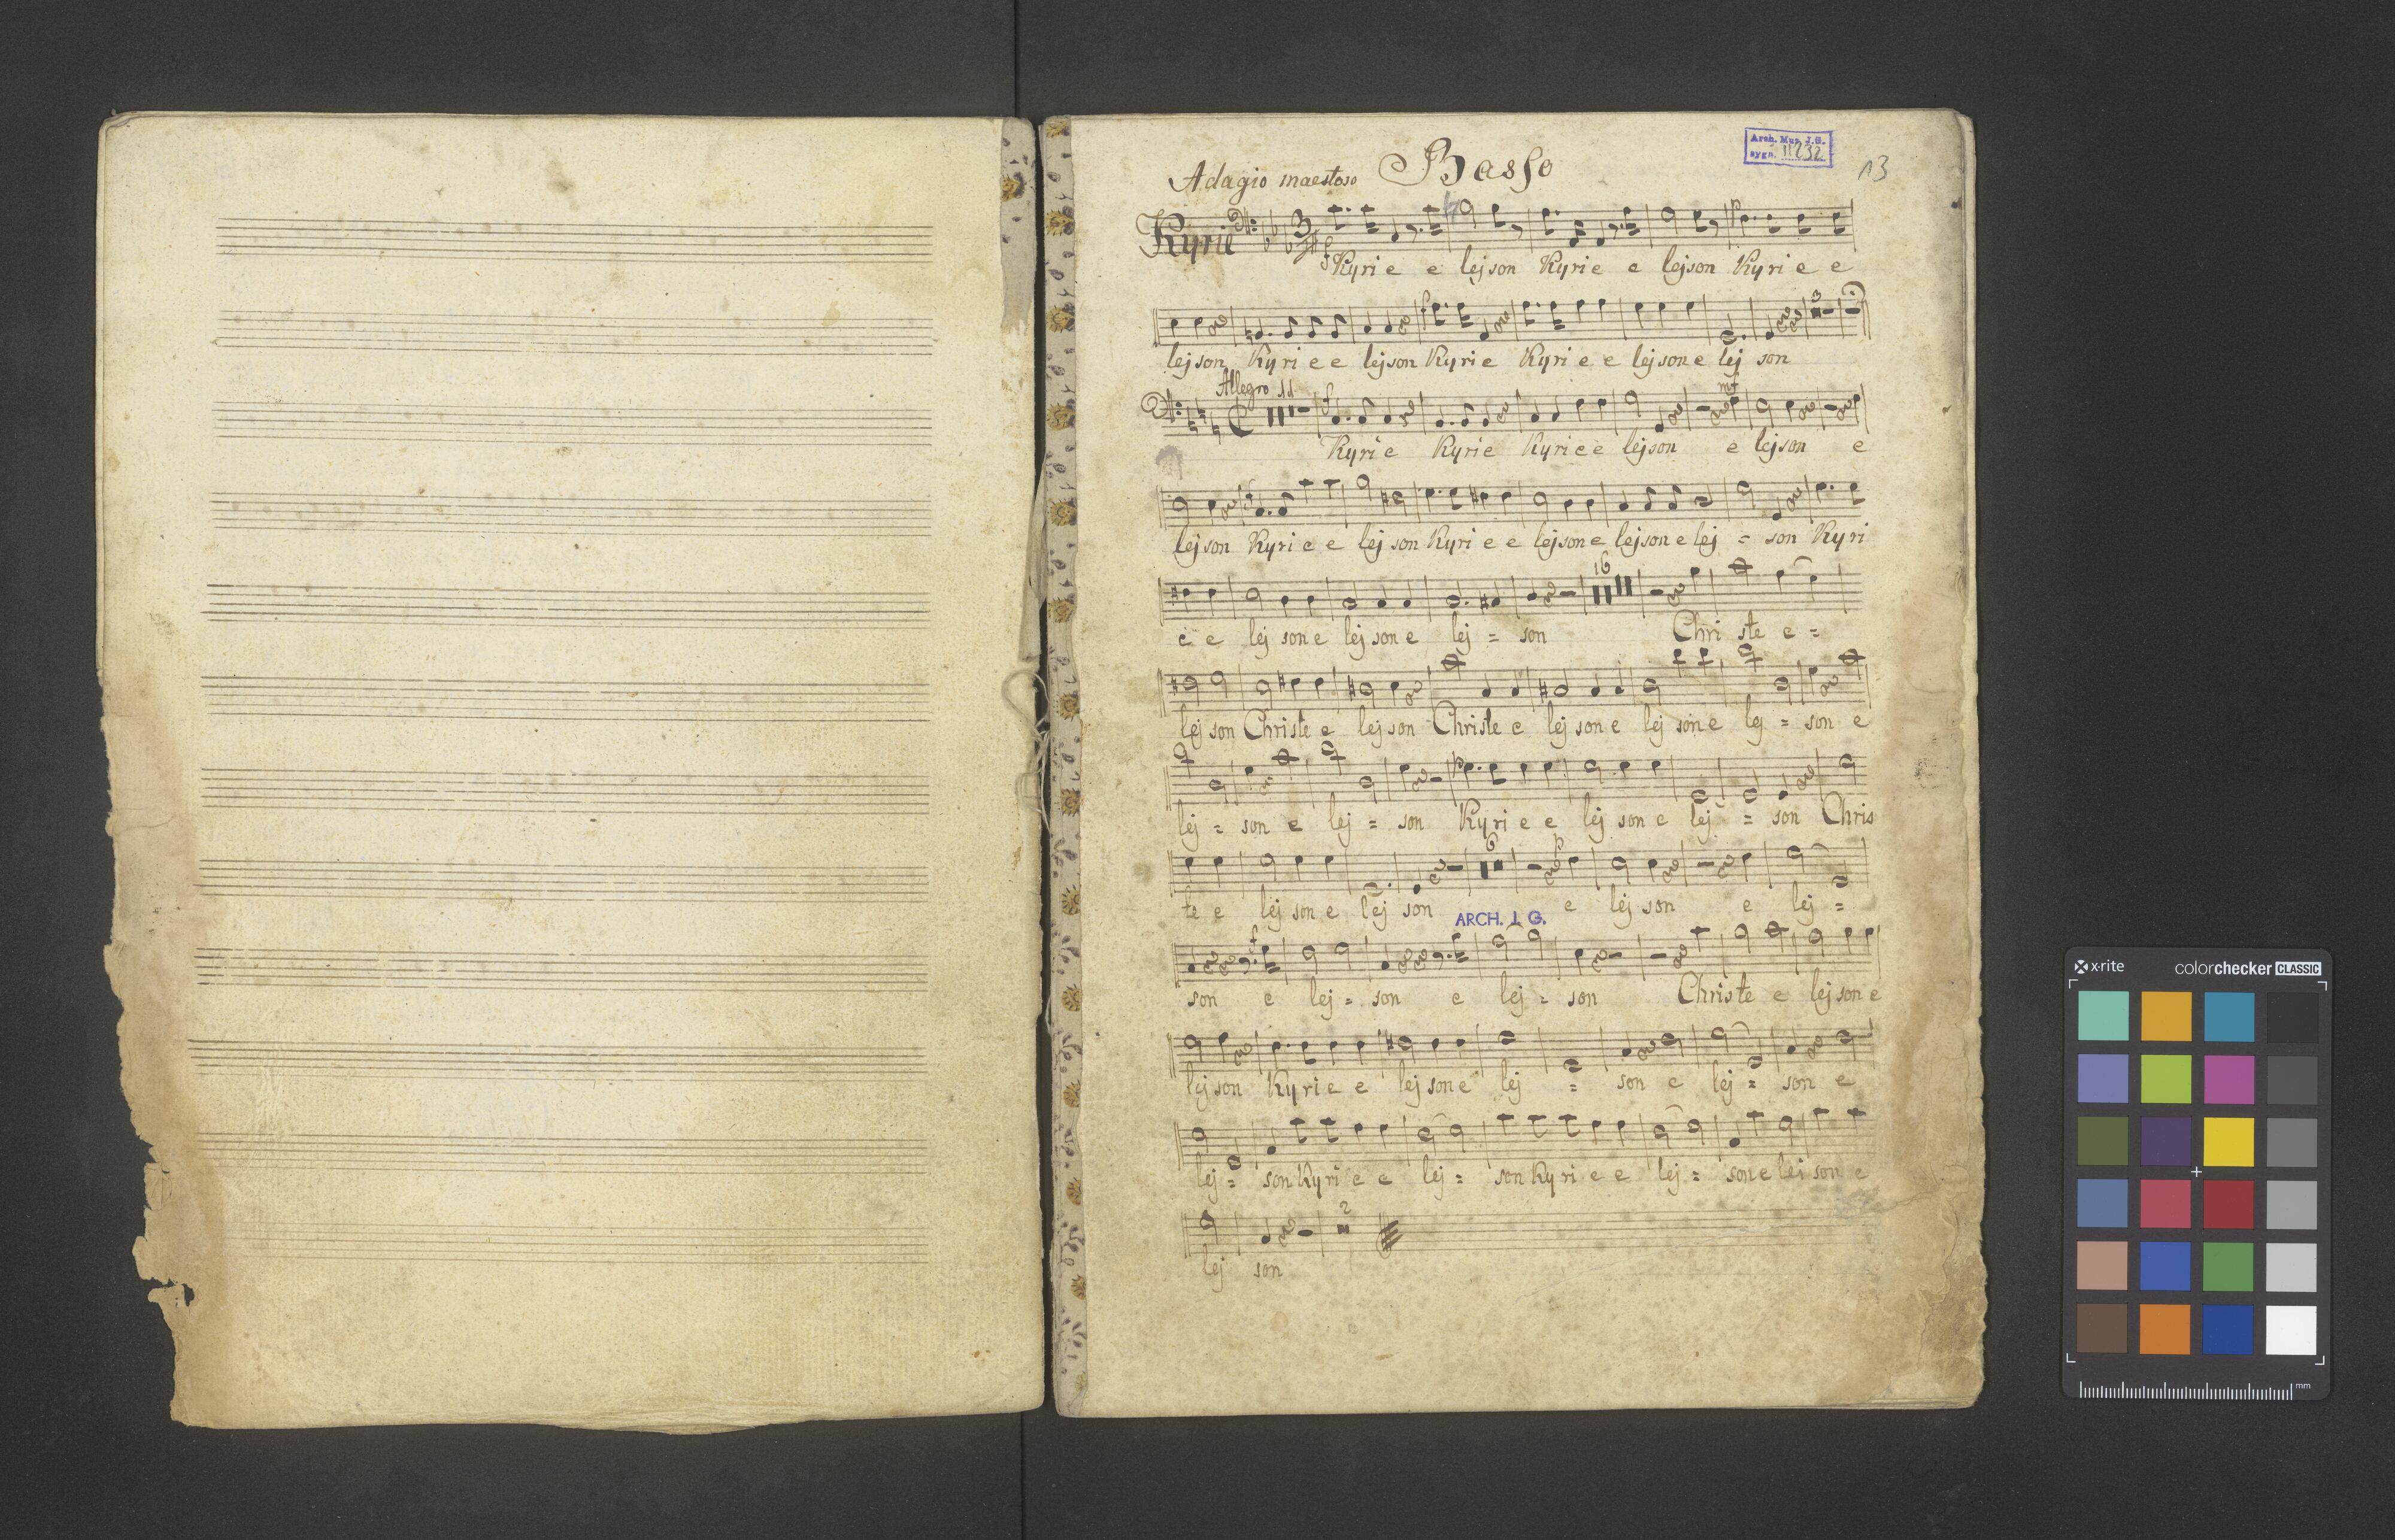 Adagio maestoso Basso
Arch. Mus. J.G.
sygn. II 232
13
Kyrie 3 4 f p
Kyri e e lejson Kyri e e lejson Kyri e e
f 3
lejson Kyri e e lejson Kyri e Kyri e e lejson e lej son
Allegro 11 f mf
Kyri e Kyri e Kyri e e lejson e lejson e
f
lejson Kyri e e lej son Kyri e e lejson e lejson e lej = son Kyri
16
e e lej son e lej son e lej = son Chri ste e =
lej son Christe e lej son Christe e lej son e lej son e lej = son e
p
lej = son e lej = son Kyri e e lej son e lej = son Chris
6 p
te e lej son e lej son e lej son e lej =
ARCH. J. G.
f
son e lej = son e lej = son Christe e lej son e
lej son Kyri e e lej son e lej = son e lej = son e
lej = son Kyri e e lej = son Kyri e e lej = son e lej son e
2
lej son
x-rite colorchecker CLASSIC
mm